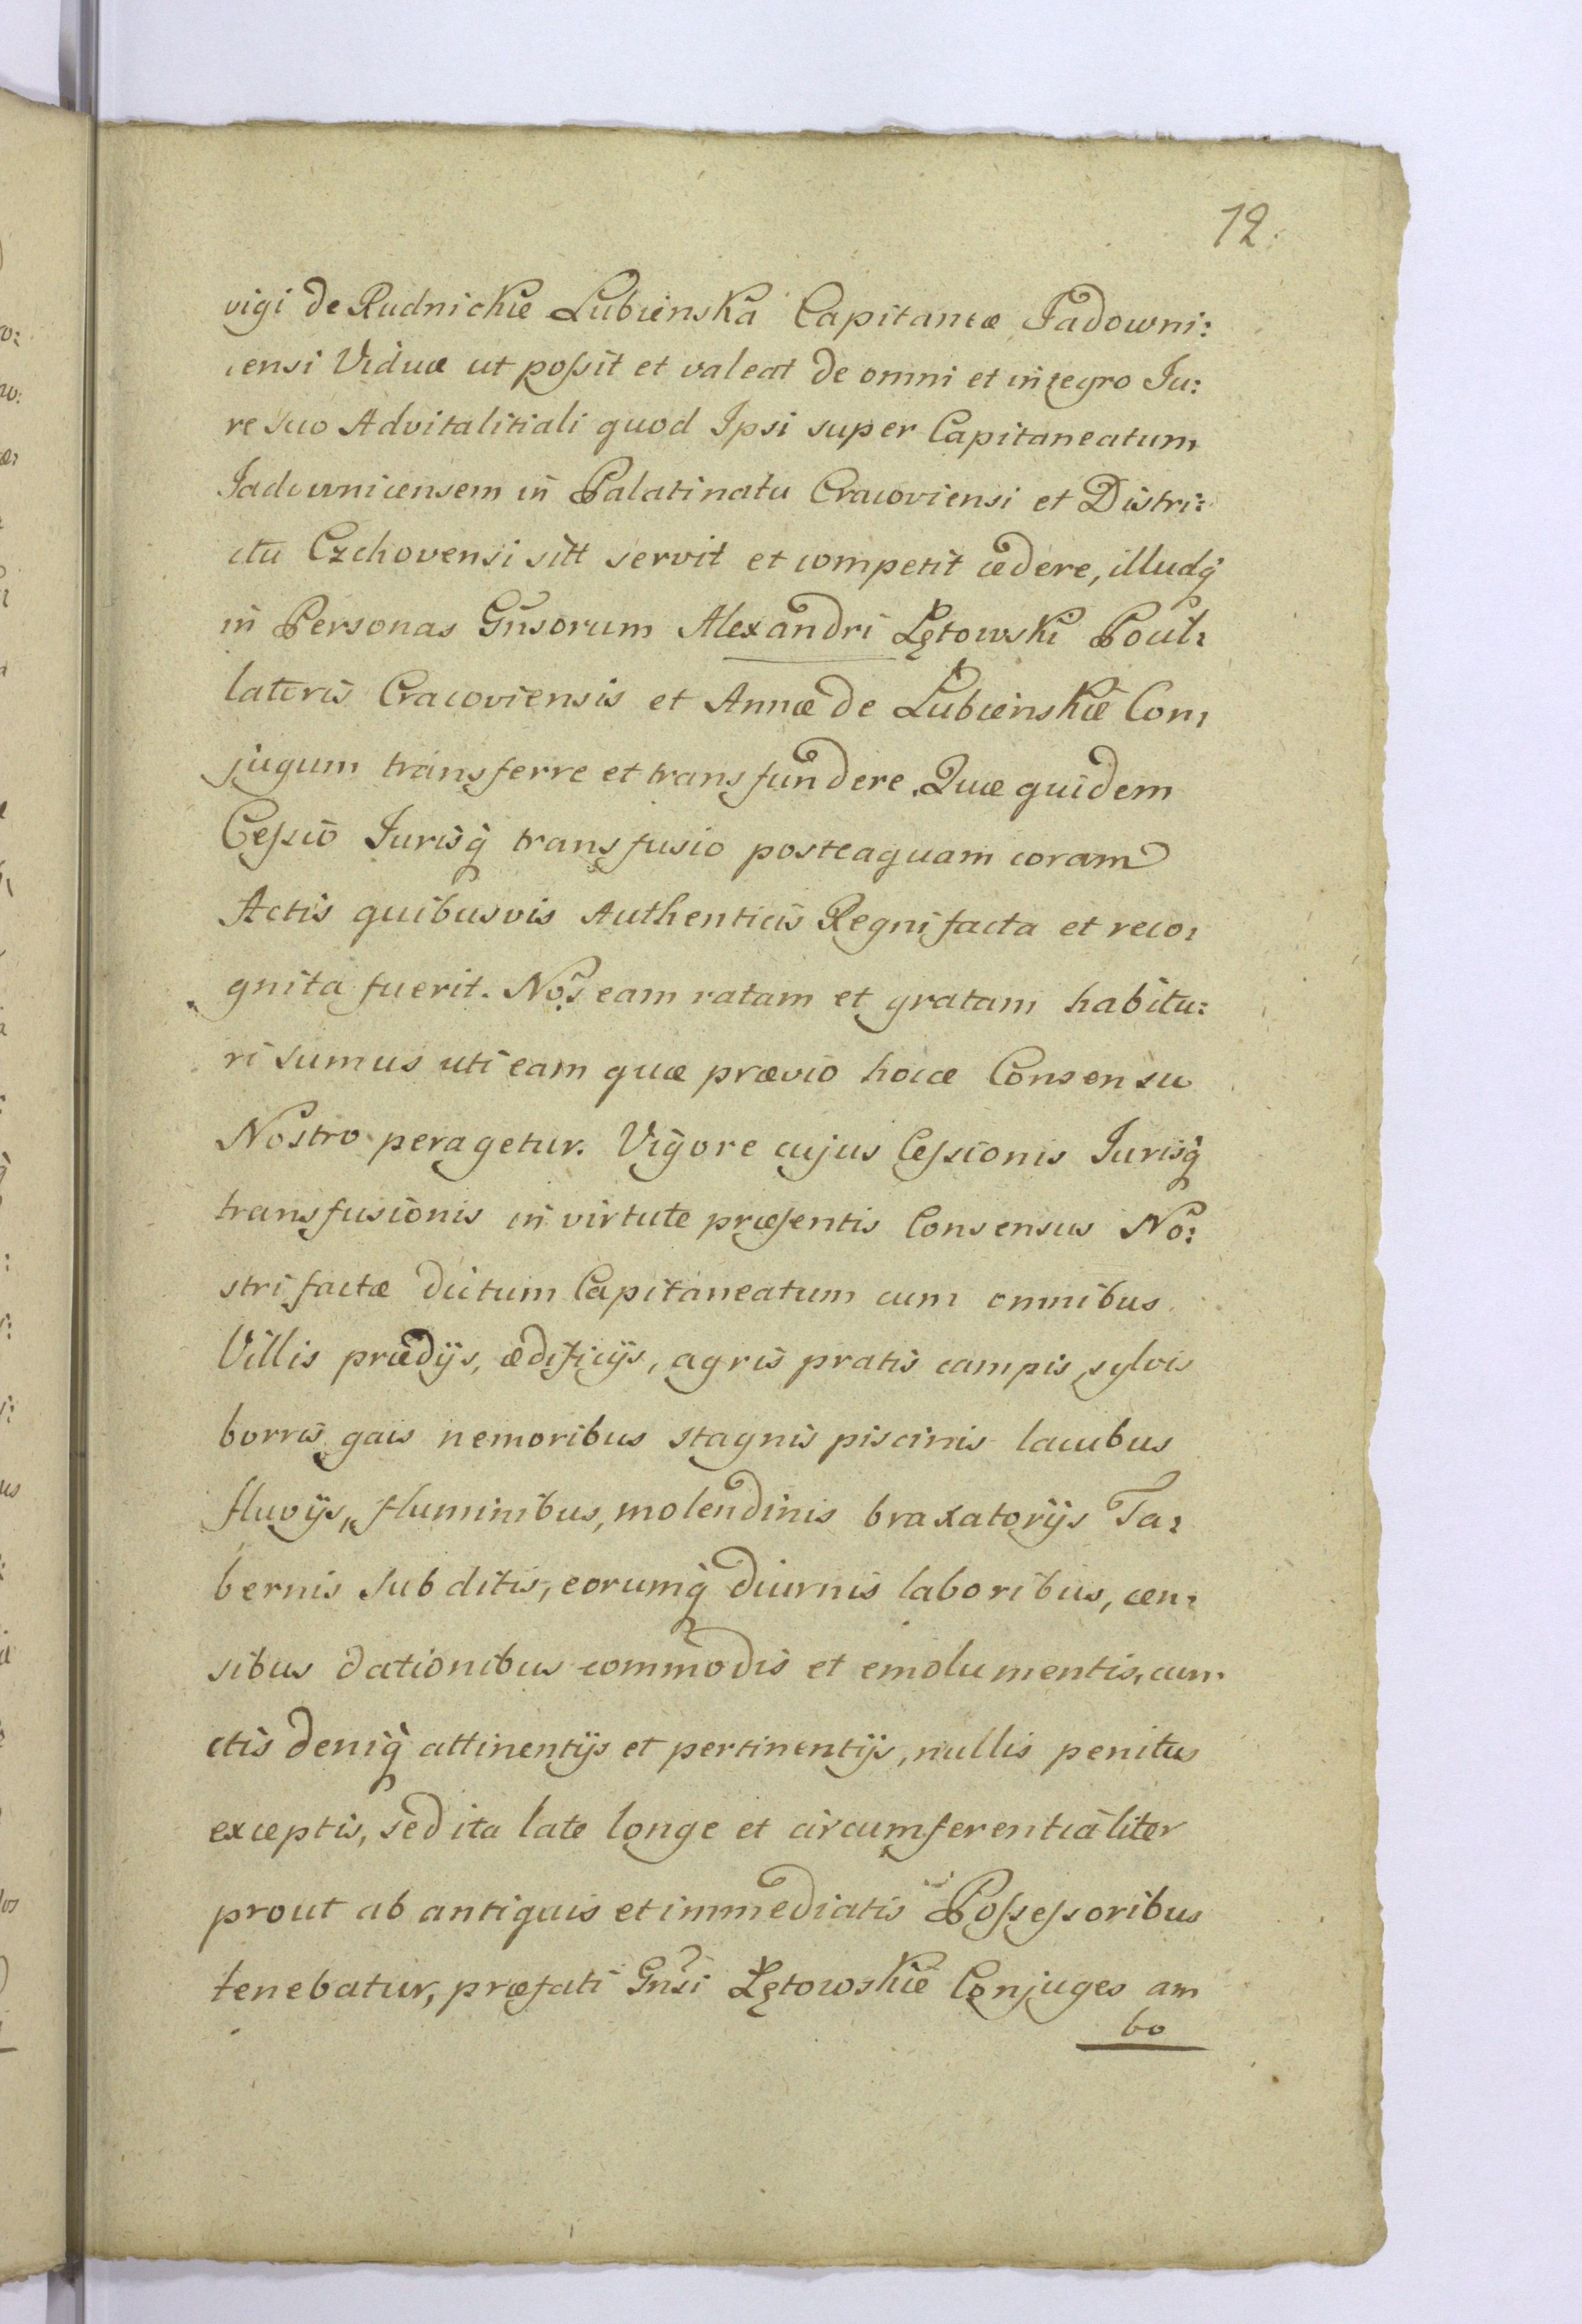 12.
vigi de Rudnickie Lubienska Capitaneæ Jadowni:
censi Viduæ ut possit et valeat de omni et integro Ju:
re suo Advitalitiali quod Ipsi super Capitaneatum
Jadownicensem in Palatinatu Cracoviensi et Distri:
ctu Czchovensi sitt servit et competit cedere, illudq̀
in Personas Gñsorum Alexandri Łętowski Pocil:
latoris Cracoviensis et Annæ de Łubienskie Con:
jugum transferre et transfundere. Quæ quidem
Cessio Jurisq̀ transfusio posteaquam coram
Actis quibusvis Authenticis Regni facta et reco:
gnita fuerit. Nos eam ratam et gratam habitu:
ri sumus uti eam quæ prævio hocce Consensu
Nostro peragetur. Vigore cujus Cessionis Jurisq̀
transfusionis in virtute præsentis Consensus No:
stri factæ dictum Capitaneatum cum omnibus
Villis prædijs, ædificijs, agris pratis campis sylvis
borris gais nemoribus stagnis piscinis lacubus
fluvijs, fluminibus, molendinis braxatorijs Ta:
bernis subditis, eorumq̀ diurnis laboribus, cen:
sibus dationibus commodis et emolumentis, cun
ctis deniq̀ attinentijs et pertinentijs, nullis penitus
exceptis, sed ita late longe et circumferentialiter
prout ab antiquis et immediatis Possessoribus
tenebatur, præfati Gñsi Łętowskie Conjuges am
bo